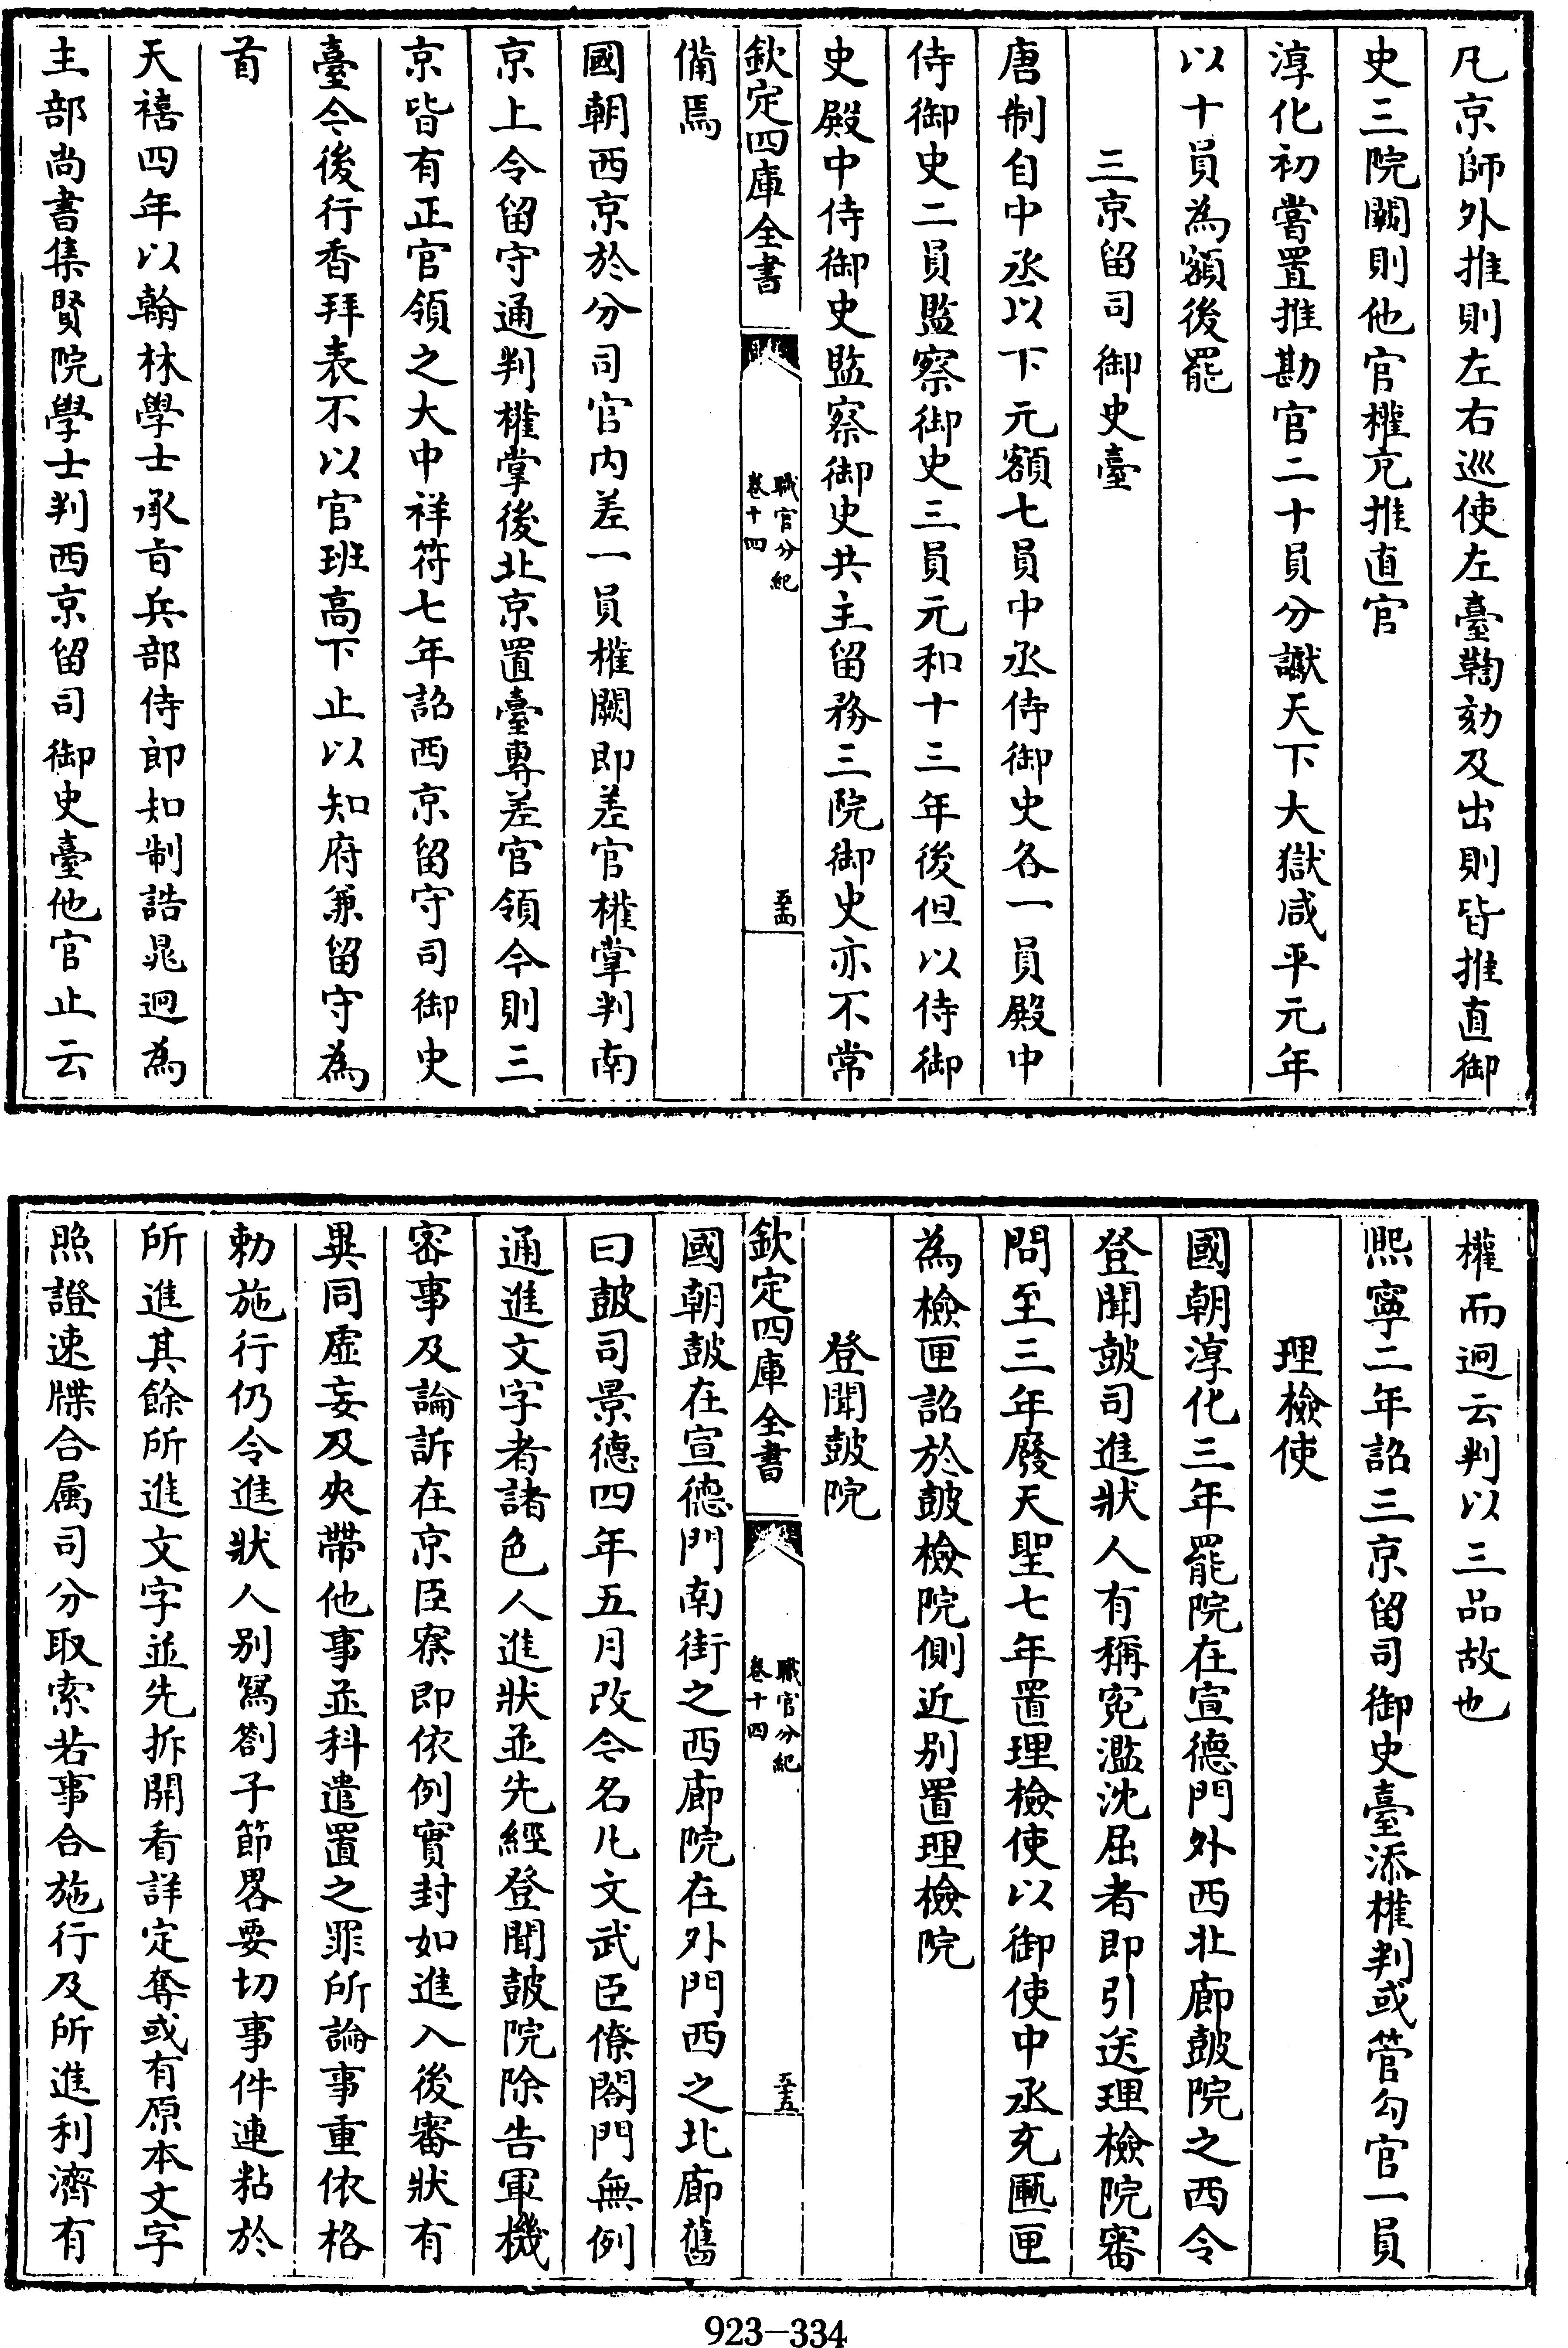 凡京師外推則左右巡使左臺鞫劾及出則皆推直御
史三院闕則他官權充推直官
淳化初嘗置推勘官二十員分讞天下大獄咸平元年
以十員為額後罷
三京留司御史臺
唐制自中丞以下元額七員中丞侍御史各一員殿中
侍御史二員監察御史三員元和十三年後但以侍御
史殿中侍御史監察御史共主留務三院御史亦不常
欽定四庫全書
職官分紀
卷十四
五十四
備焉
國朝西京於分司官內差一員權闕即差官權掌判南
京上令留守通判權掌後北京置臺專差官領今則三
京皆有正官領之大中祥符七年詔西京留守司御史
臺今後行香拜表不以官班高下止以知府兼留守為
首
天禧四年以翰林學士承旨兵部侍郎知制誥晁迥為
主部尚書集賢院學士判西京留司御史臺他官止云
權而迥云判以三品故也
熙寧二年詔三京留司御史臺添權判或管勾官一員
理檢使
國朝淳化三年罷院在宣德門外西北廊鼓院之西令
登聞鼓司進狀人有稱寃濫沈屈者即引送理檢院審
問至三年廢天聖七年置理檢使以御使中丞充匭匣
為檢匣詔於鼓檢院側近別置理檢院
登聞鼓院
欽定四庫全書
職官分紀
卷十四
五十五
國朝鼓在宣德門南街之西廊院在外門西之北廊舊
曰鼓司景德四年五月改今名凡文武臣僚閤門無例
通進文字者諸色人進狀並先經登聞鼓院除告軍機
密事及論訴在京臣寮即依例實封如進入後審狀有
異同虛妄及夾帶他事並科違置之罪所論事重依格
勅施行仍令進狀人別寫劄子節畧要切事件連粘於
所進其餘所進文字並先拆開看詳定奪或有原本文字
照證速牒合属司分取索若事合施行及所進利濟有
923-334